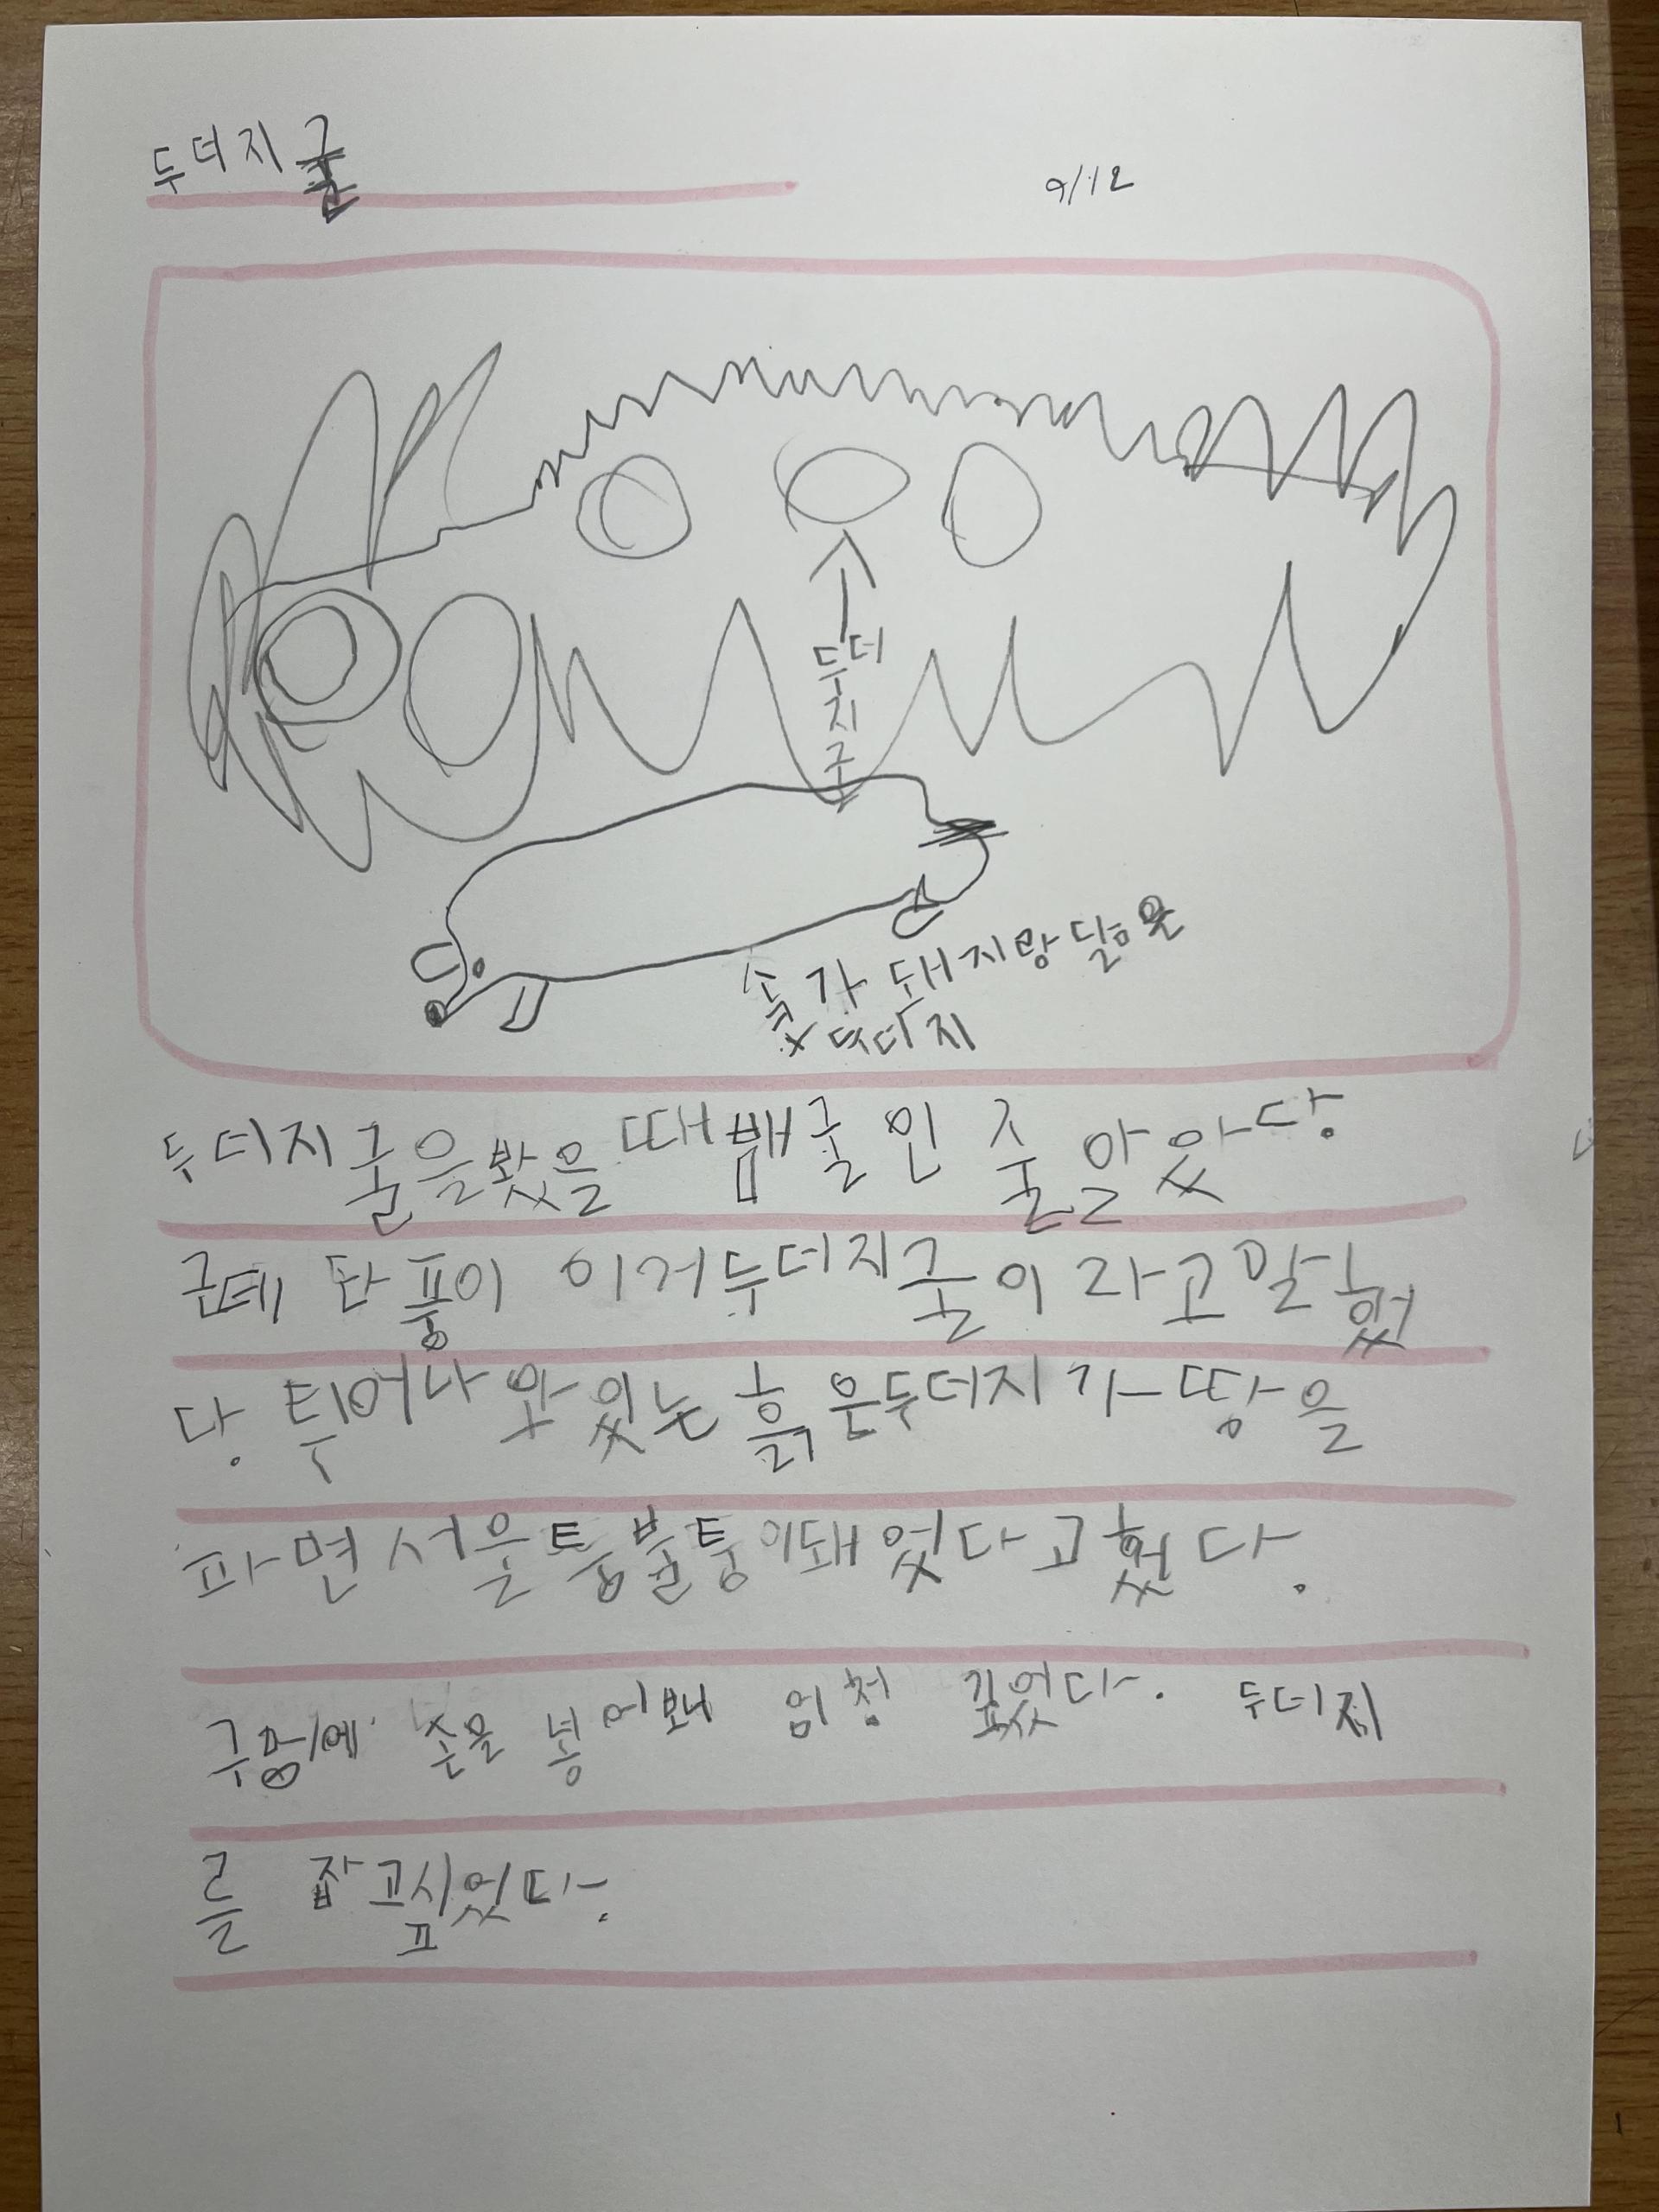 두더지굴
9/12
두더지굴
솟가 돼지랑 닮은
두더지
두더지 굴을 봤을 때 뱀굴인 줄 알았당
근데 단풍이 이거 두더지 굴이라고 말했
당. 튀어나 와 있는 흙은 두더지가 땅을
파면서 울퉁불퉁이 돼었다고 했다.
구멍에 손을 넣어봬 엄청 깊었다. 두더지
를 잡고싶었다.